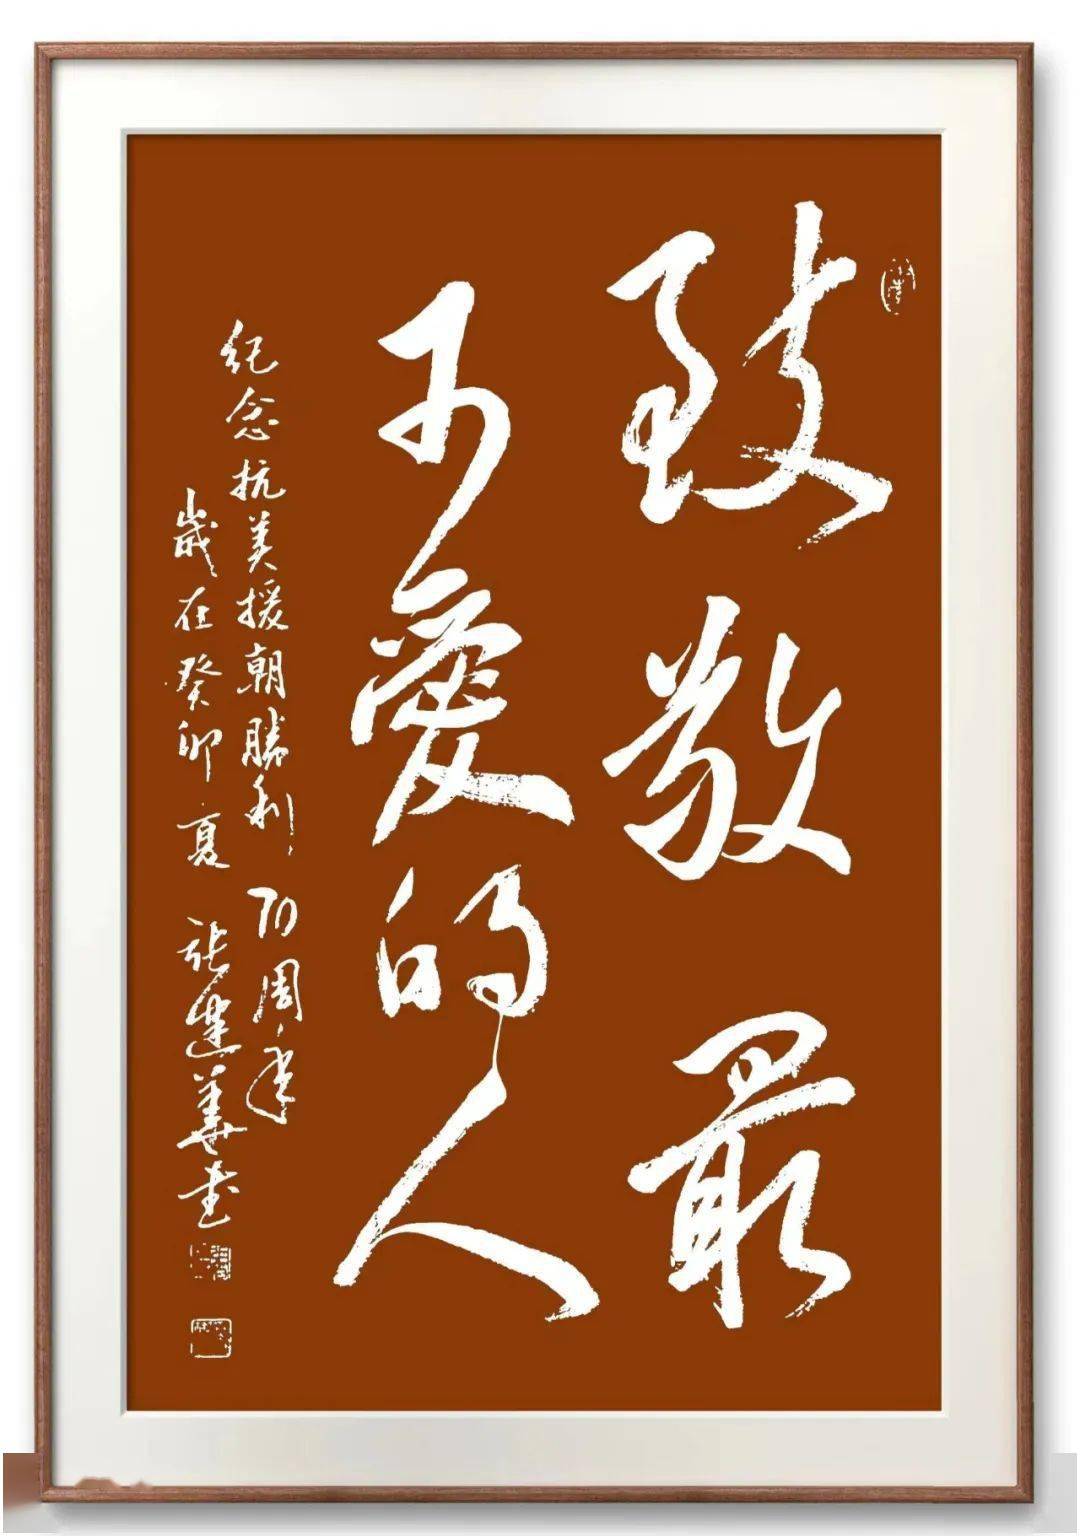 致敬最
可愛的人
纪念抗美援朝勝利70周年
歲在癸卯夏 张建華书